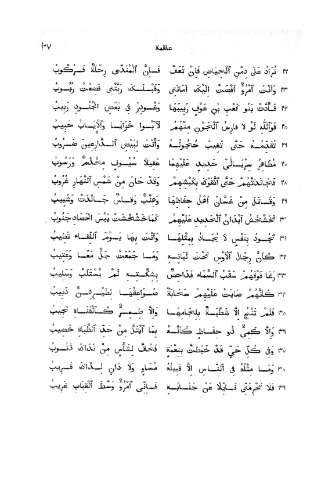 علقمة ١٠٧
٢٢ تراد على دمن الحياض فإن تعف فإن المندى رحلة فركوب
٢٣ وأنت امرؤ أفضت إليك أمانتي وقبلك ربتني فضعت ربوب
٢٤ فأدت بنو كعب بن عوف ربيبها وغودر في بعض الجنود ربيب
٢٥ فوالله لولا فارس الجون منهم لآبوا خزايا والإياب حبيب
٢٦ تقدمه حتى تغيب حجوله وأنت لبيض الدارعين ضروب
٢٧ مظاهر سربالي حديد عليهما عقيلا سيوف مخذم ورسوب
٢٨ فجالدتهم حتى اتقوك بكبشهم وقد حان من شمس النهار غروب
٢٩ وقاتل من غسان أهل حفاظها وهنب وقاس جالدت وشبيب
٣٠ تخشخش أبدان الحديد عليهم كما خشخشت يبس الحصاد جنوب
٣١ تجود بنفس لا يجاد بمثلها وأنت بها يوم اللقاء تطيب
٣٢ كأن رجال الأوس تحت لبانه وما جمعت جل معا وعتيب
٣٣ رغا فوقهم سقب السماء فداحص بشكته لم يستلب وسليب
٣٤ كأنهم صابت عليهم سحابة صواعقها لطيرهن دبيب
٣٥ فلم تنج إلا شطبة بلجامها وإلا طمر كالقناة نجيب
٣٦ وإلا كمي ذو حفاظ كأنه بما ابتل من حد الظباة خضيب
٣٧ وفي كل حي قد خبطت بنعمة فحق لشأس من نداك ذنوب
٣٨ وما مثله في الناس إلا قبيله مساو ولا دان لذاك قريب
٣٩ فلا تحرمني نائلا عن جنابة فإني امرؤ وسط القباب غريب